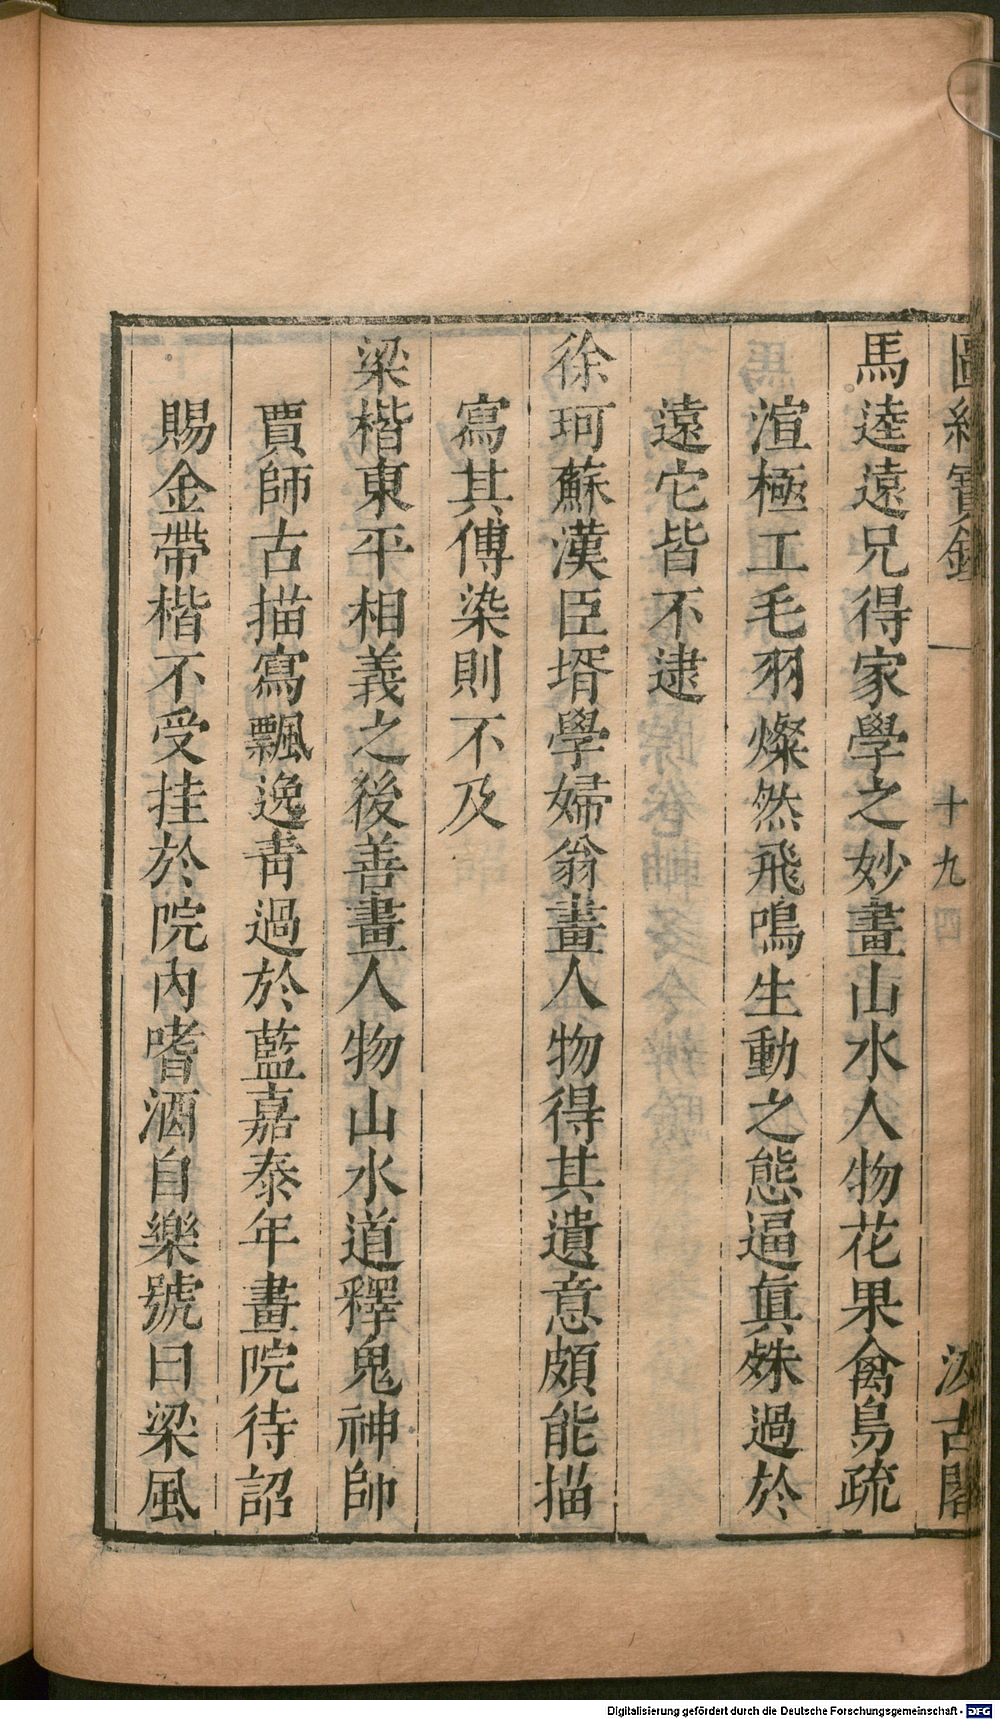 圖繪寶鑑
十九
汲古閣
馬逵遠兄得家學之妙畫山水人物花果禽鳥疏
渲極工毛羽燦然飛鳴生動之態逼眞殊過於
遠它皆不逮
徐珂蘇漢臣壻學婦翁畫人物得其遺意頗能描
寫其傅染則不及
梁楷東平相義之後善畫人物山水道釋鬼神師
賈師古描寫飄逸靑過於藍嘉泰年畫院待詔
賜金帶楷不受挂於院內嗜酒自樂號曰梁風
Digitalisierung gefördert durch die Deutsche Forschungsgemeinschaft - DFG